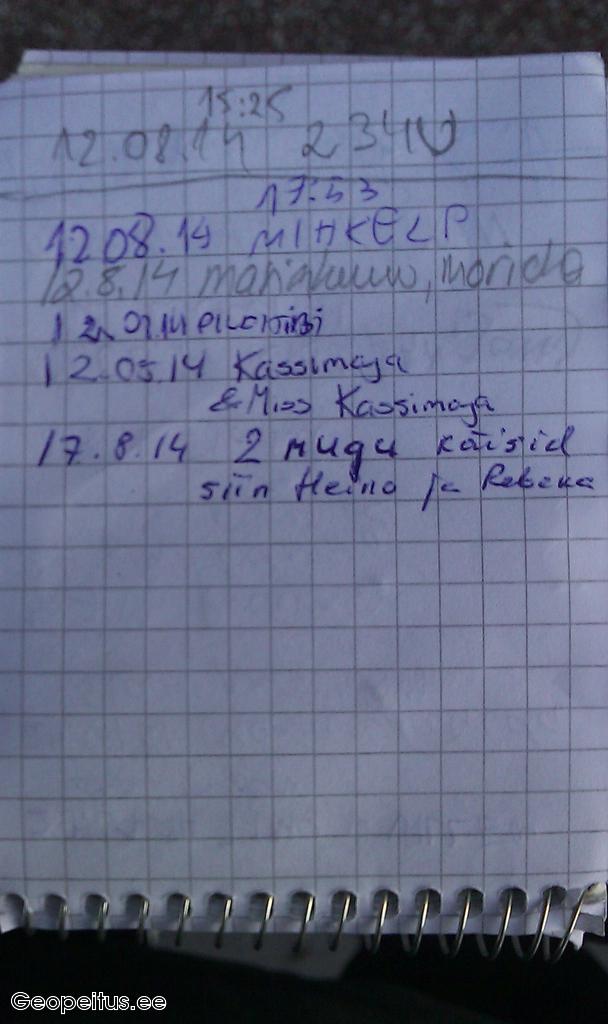 15:25
12.08.14 234U
17:53
12 08.14 MIHKELP
12.8.14
12.
12.08.14 Kassimaja
& Miss Kassimaja
17.8.14 2 mugu käisid
siin Heino ja Rebeka
Geopeitus.ee